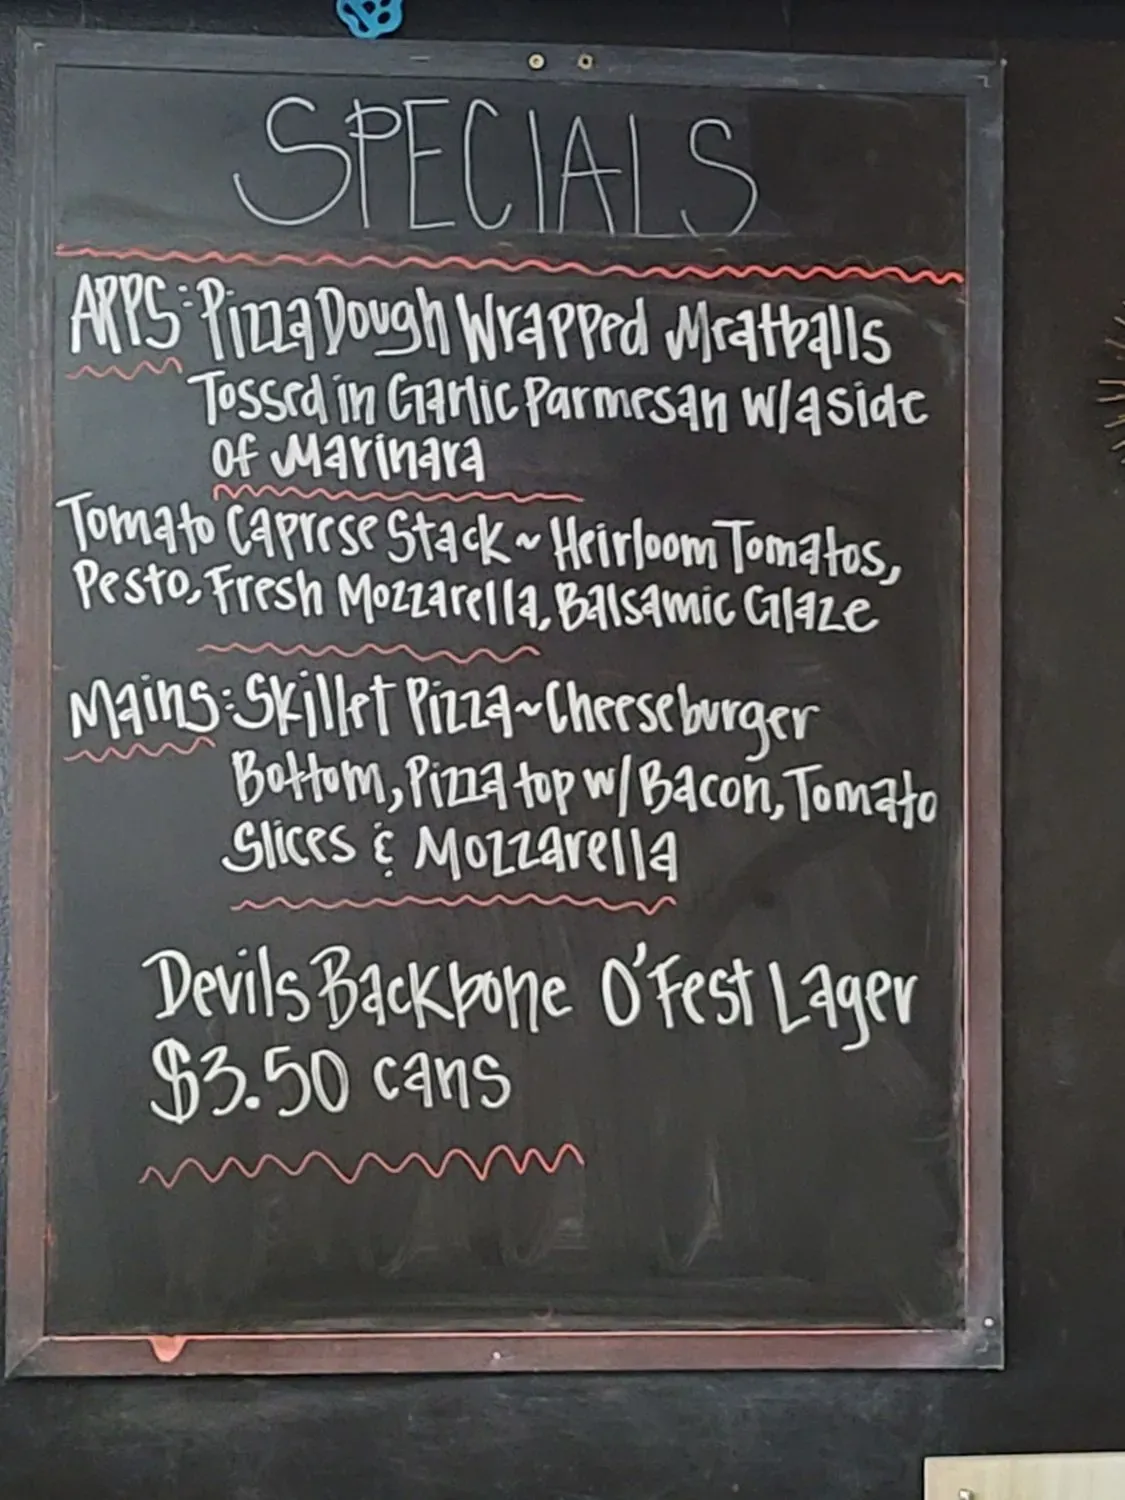 SPECIALS
APPS: Pizza Dough Wrapped Meatballs
Tossed in Garlic Parmesan w/a side
of Marinara
Tomato Caprese Stack ~ Heirloom Tomatos,
Pesto, Fresh Mozzarella, Balsamic Glaze
Mains: Skillet Pizza ~ Cheeseburger
Bottom, Pizza top w/ Bacon, Tomato
Slices & Mozzarella
Devils Backbone O'Fest Lager
$3.50 cans